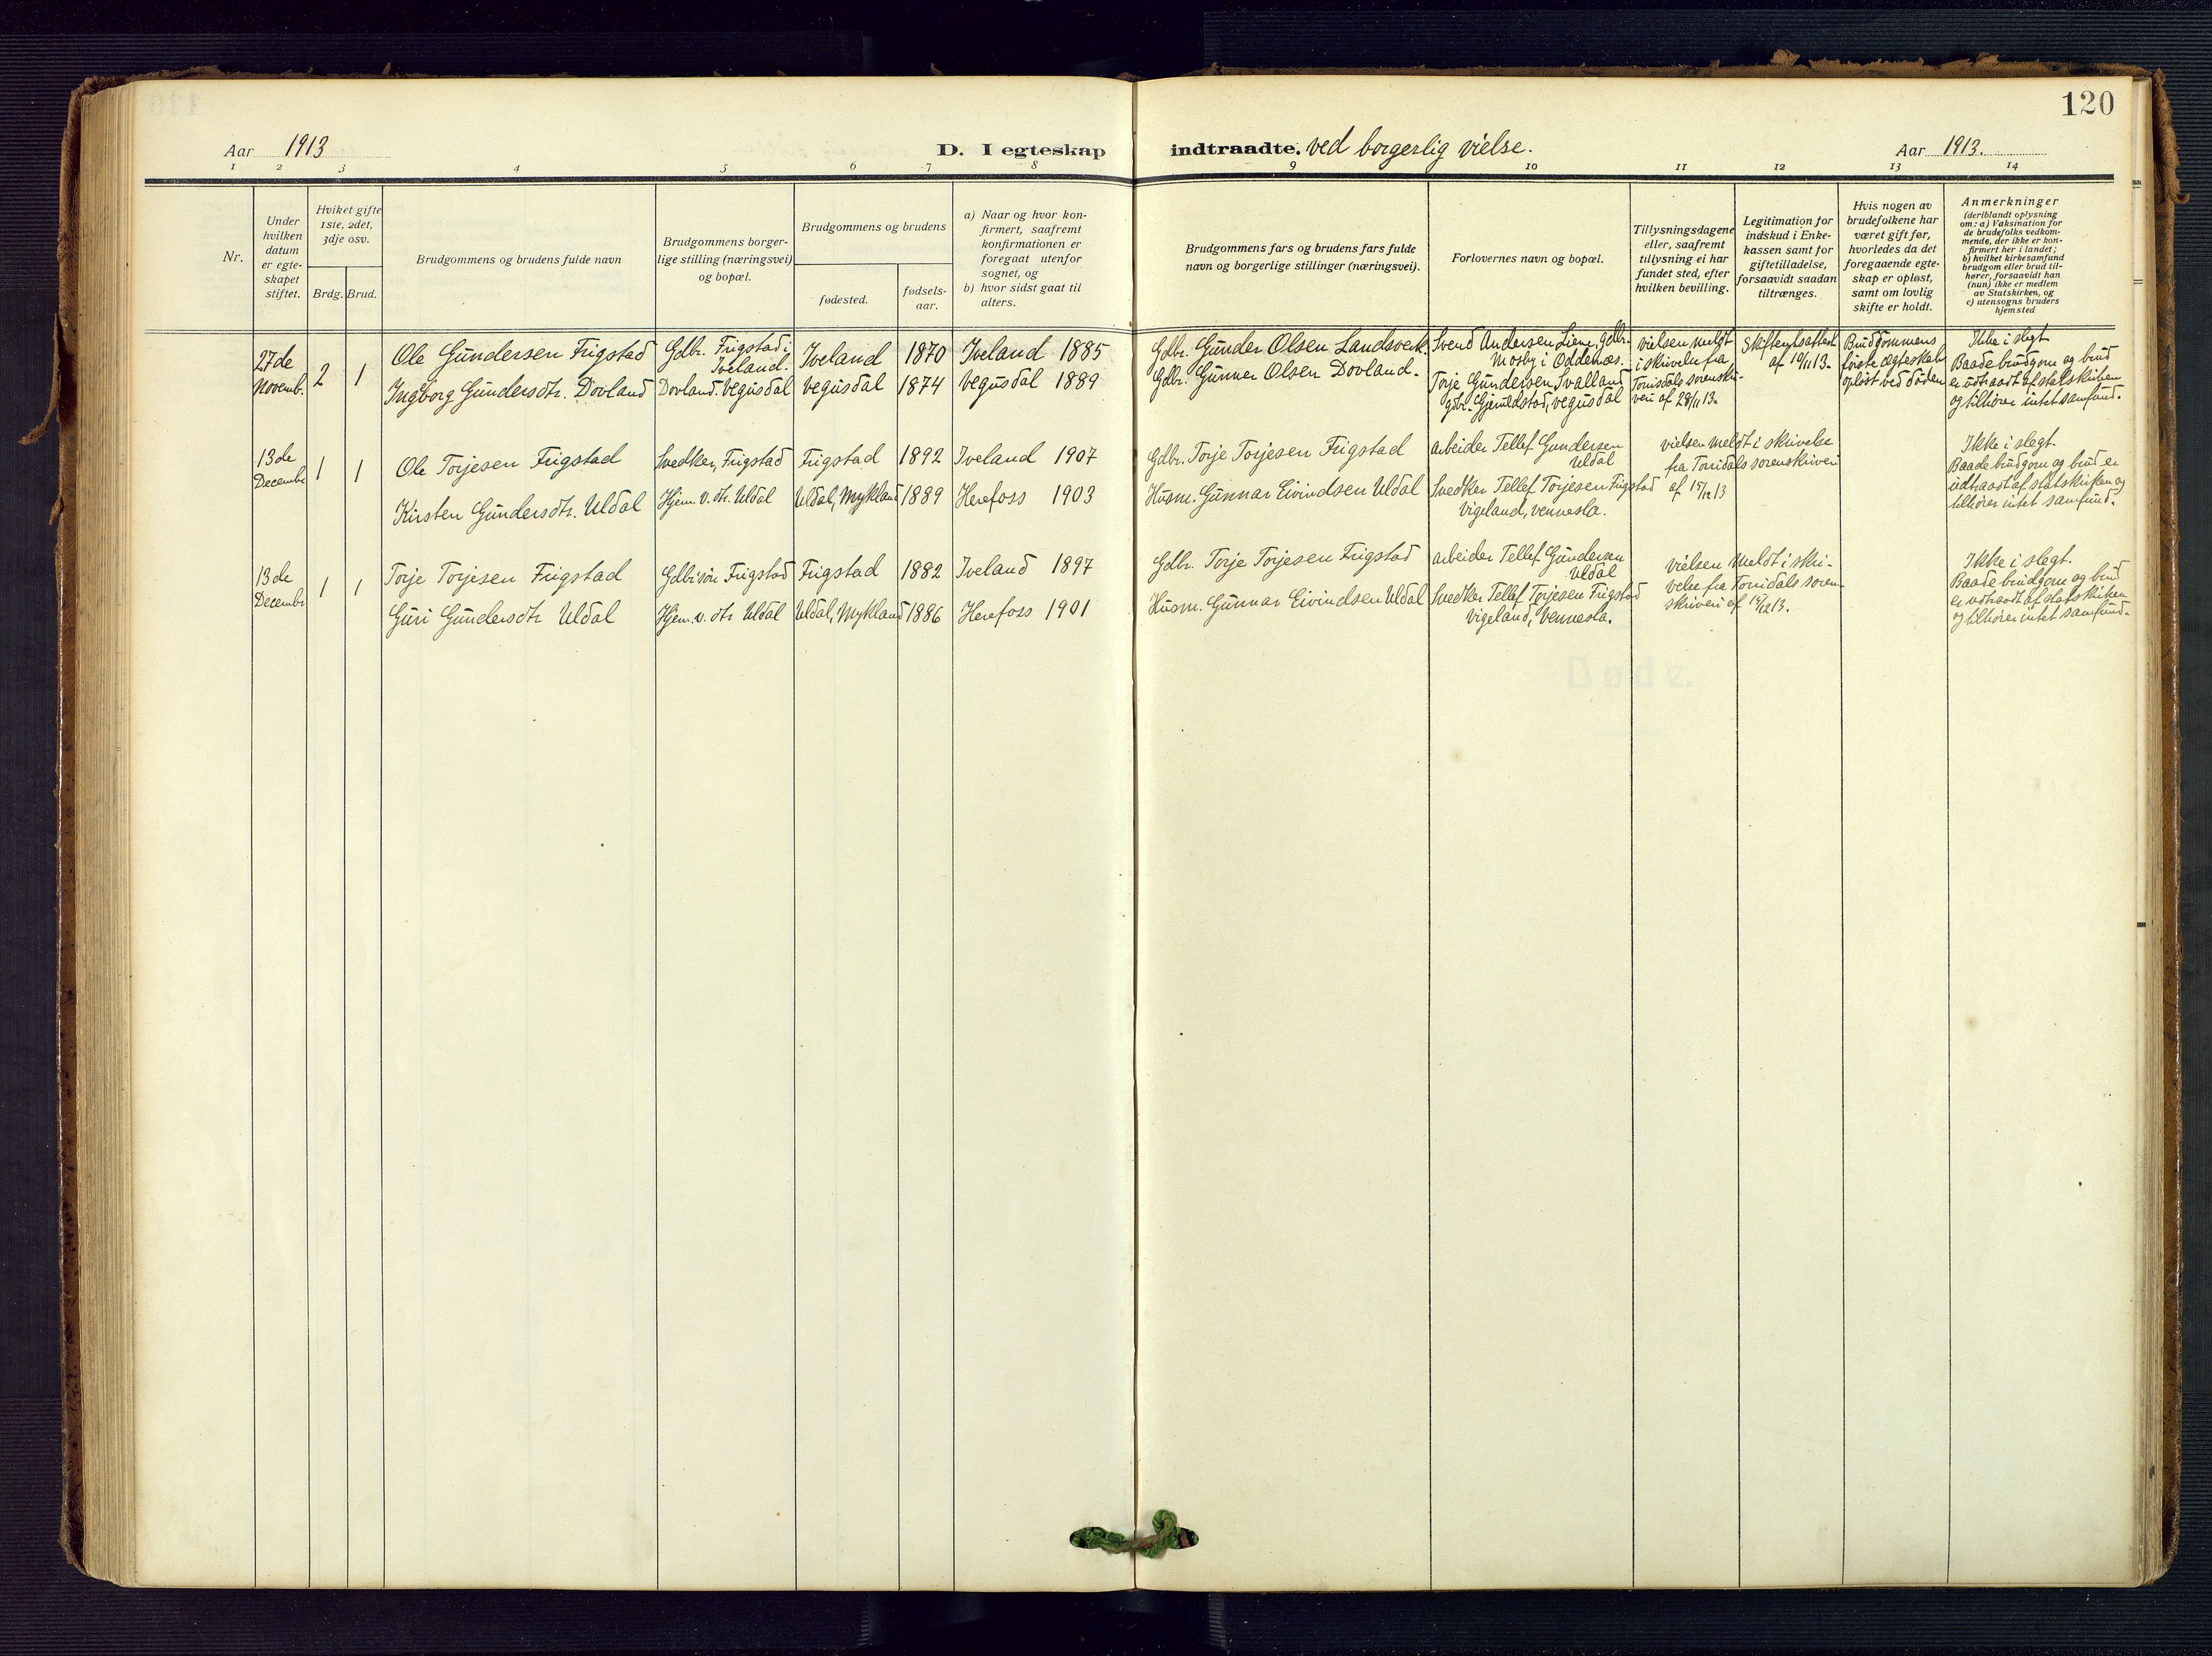 120
Aar 1913
D. I egteskap
indtraadte. ved borgerlig vielse.
Aar 1913.
1 2 3 4 5 6 7 8
9 10 11 12 13 14
Nr.
Under
hvilken
datum
er egte-
skapet
stiftet.
Hviket gifte
1ste, 2det,
3dje osv.
Brdg. Brud.
Brudgommens og brudens fulde navn
Brudgommens borger-
lige stilling (næringsvei)
og bopæl.
Brudgommens og brudens
fødested.
fødsels-
aar.
a) Naar og hvor kon-
firmert, saafremt
konfirmationen er
foregaat utenfor
sognet, og
b) hvor sidst gaat til
alters.
Brudgommens fars og brudens fars fulde
navn og borgerlige stillinger (næringsvei).
Forlovernes navn og bopæl.
Tillysningsdagene
eller, saafremt
tillysning ei har
fundet sted, efter
hvilken bevilling.
Legitimation for
indskud i Enke-
kassen samt for
giftetilladelse,
forsaavidt saadan
tiltrænges.
Hvis nogen av
brudefolkene har
været gift før,
hvorledes da det
foregaaende egte-
skap er opløst,
samt om lovlig
skifte er holdt.
Anmerkninger
(deriblandt oplysning
om: a) Vaksination for
de brudefolks vedkom-
mende, der ikke er kon-
firmert her i landet;
b) hvilket kirkesamfund
brudgom eller brud til-
hører, forsaavidt han
(hun) ikke er medlem
av Statskirken, og
c) utensogns bruders
hjemsted
27de
Novemb.
2 1
Ole Gundersen Frigstad
Ingeborg Gundersdtr. Dovland
Gdbr. Frigstad i
Iveland.
Dovland. Vegusdal
Iveland 1870
Vegusdal 1874
Iveland 1885
Vegusdal 1889
Gdbr. Gunder Olsen Landsverk.
Gdbr. Gunner Olsen Dovland.
Svend Andersen Liene, Gdbr.
Mosby i Oddernes.
Torje Gundersen Tvalland
gdbr. Gjeruldstad, Vegusdal
vielsen meldt
i skrivelse fra
Torridals sorenskri-
veri af 28/11 13.
Skifteretsattest
af 10/11 13.
Brudgommens
første ægteskab
opløst ved døden
Ikke i slegt
Baade brudgom og brud
er udtraadt af statskirken
og tilhører intet samfund.
13de
Decembr
1 1
Ole Torjesen Frigstad
Kirsten Gundersdtr. Uldal
Svedker, Frigstad
Hjem. v. dtr. Uldal
Frigstad 1892
Uldal, Mykland 1889
Iveland 1907
Herefoss 1903
Gdbr. Torje Torjesen Frigstad
Husm. Gunnar Eivindsen Uldal
arbeider Tellef Gundersen
Uldal
Svedker Tellef Torjesen Frigstad
Vigeland, Vennesla.
vielsen meldt i skrivelse
fra Torridals sorenskriveri
af 15/12 13
Ikke i slegt.
Baade brudgom og brud er
udtraadt af statskirken og
tilhører intet samfund.
13de
Decembr
1 1
Torje Torjesen Frigstad
Guri Gundersdtr Uldal
Gdbrsøn Frigstad
Hjem. v. dtr Uldal
Frigstad 1882
Uldal, Mykland 1886
Iveland 1897
Herefoss 1901
Gdbr. Torje Torjesen Frigstad
Husm. Gunnar Eivindsen Uldal
arbeider Tellef Gundersen
Uldal
Svedker Tellef Torjesen Frigstad
Vigeland, Vennesla.
vielsen meldt i skri-
velse fra Torridals soren-
skriveri af 15/12 13.
Ikke i slegt.
Baade brudgom og brud
er udtraadt af statskirken
og tilhører intet samfund.